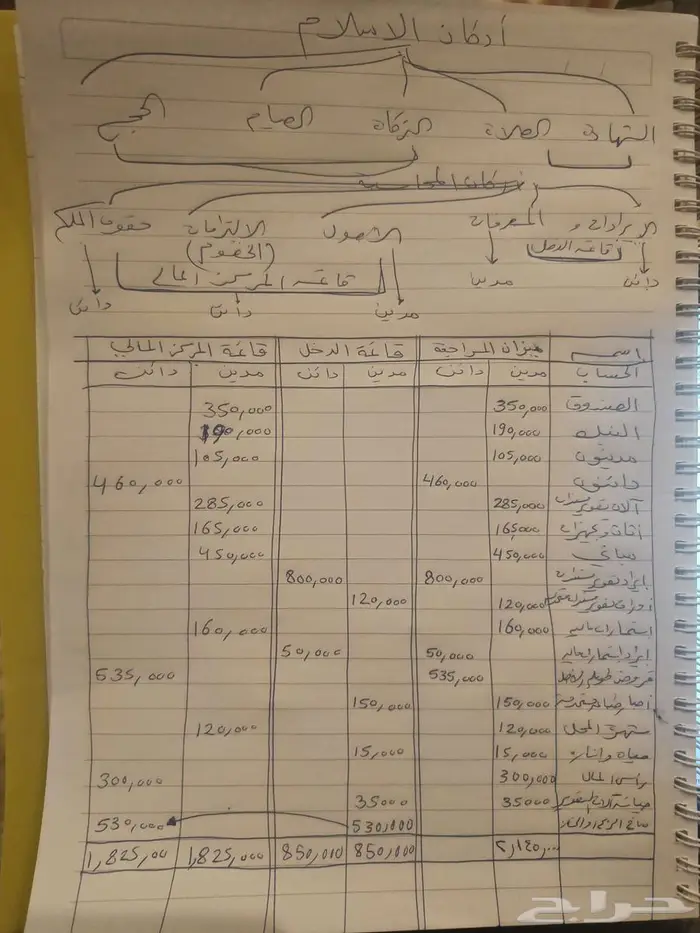 أركان الإسلام
الشهادة الصلاة الزكاة الصيام الحج
أركان المحاسبة
الإيرادات و المصروفات الأصول الالتزامات حقوق الملكية
(قائمة الدخل) (الخصوم)
قائمة المركز المالي
دائن مدين مدين دائن دائن
اسم ميزان المراجعة قائمة الدخل قائمة المركز المالي
الحساب مدين دائن مدين دائن مدين دائن
الصندوق 350,000 350,000
البنك 190,000 190,000
مدينون 105,000 105,000
دائنون 460,000 460,000
آلات تصوير مستندات 285,000 285,000
أثاث وتجهيزات 165,000 165,000
مباني 450,000 450,000
إيراد تصوير مستندات 800,000 800,000
أوراق تصوير 120,000 120,000
استثمارات مالية 160,000 160,000
إيراد استثمارات مالية 50,000 50,000
قروض طويلة الأجل 535,000 535,000
150,000 150,000
شهرة المحل 120,000 120,000
مياه وإنارة 15,000 15,000
رأس المال 300,000 300,000
صيانة آلات التصوير 35000 35000
صافي الربح أو الخسارة 530,000 530,000
850,000 850,000 1,825,000 1,825,00
حراج